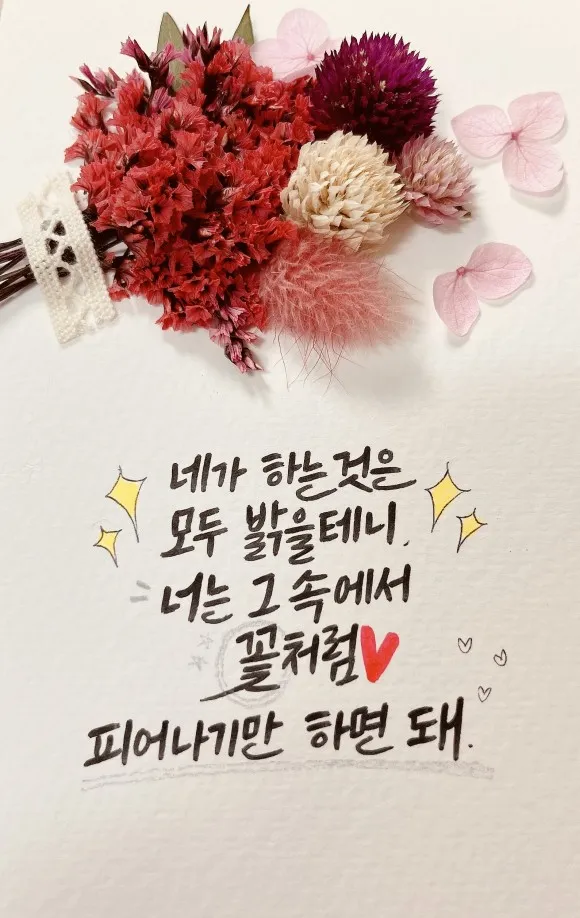 네가 하는것은
모두 밝을테니.
너는 그 속에서
꼴처럼
피어나기만 하면 돼.